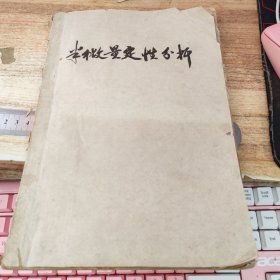 半微量定性分析